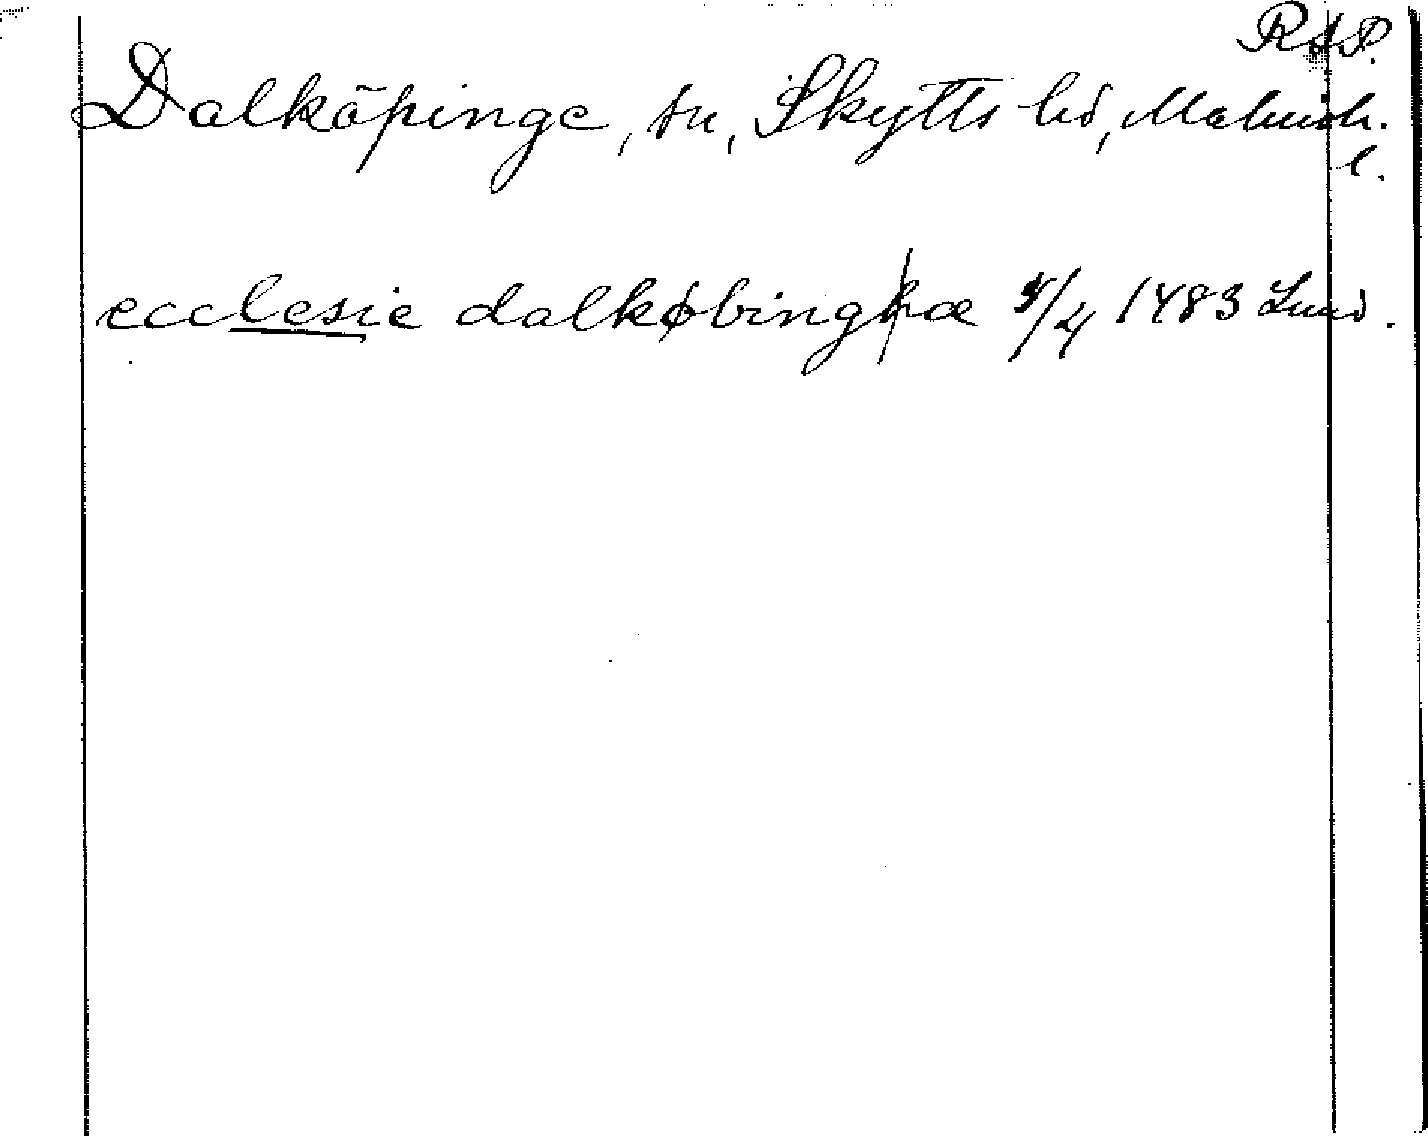 RAP.
Dalköpinge, sn, Skytts hd, Malmöh.
l.
ecclesie dalkøbinghæ 5/4 1483 Lund.